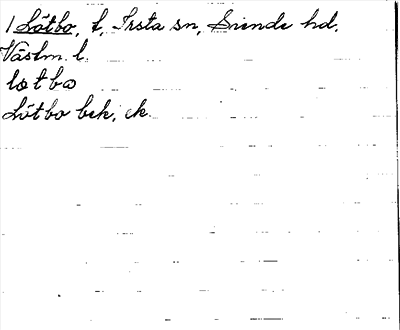 1 Lötbo, t, Irsta sn, Siende hd,
Västm. l.
løtbω
Lötbo bek, ek